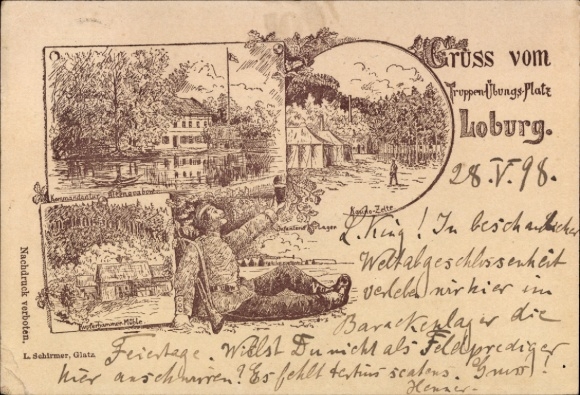 Gruss vom
Truppen-Übungs-Platz
Loburg.
28.V.98.
Kommandantur
Kaufs-Zelte
Infanterie Lager
Kupferhammer Mühle
L. King! In beschaulicher
Weltabgeschlossenheit
verleben wir hier im
Barackenlager die
Feiertage. Willst Du nicht als Feldprediger
hier anschwirren? Es fehlt tertius Gruss!
Henner.
Nachdruck verboten.
L. Schirmer, Glatz